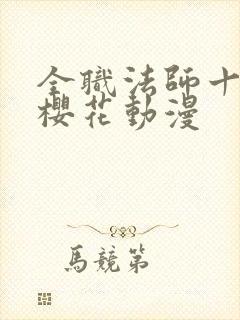 全職法師十
櫻花動漫
馬競第